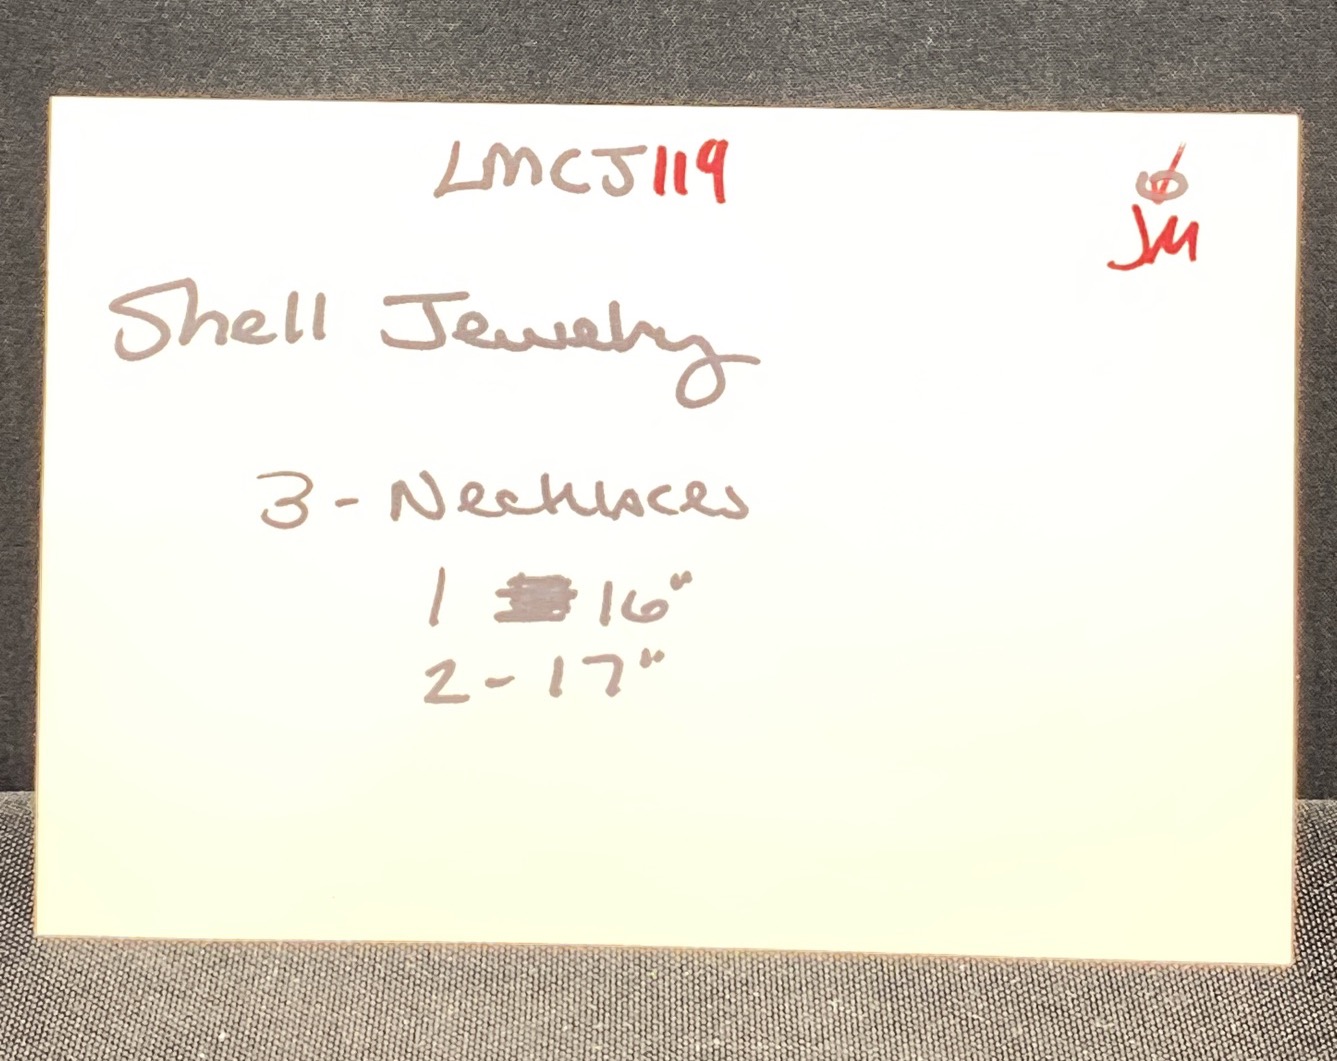 LMCJ119
JM
Shell Jewelry
3 - Necklaces
1 16"
2 - 17"